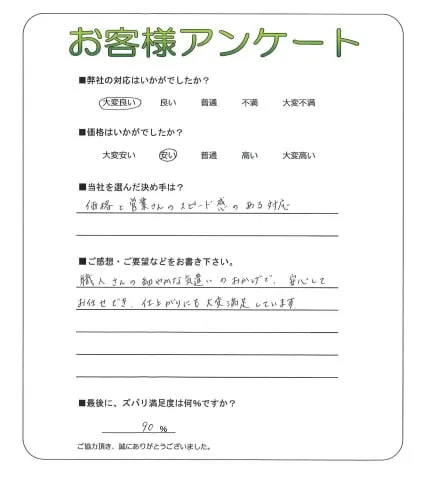 お客様アンケート
■弊社の対応はいかがでしたか？
大変良い 良い 普通 不満 大変不満
■価格はいかがでしたか？
大変安い 安い 普通 高い 大変高い
■当社を選んだ決め手は？
価格と営業さんのスピード感のある対応
■ご感想・ご要望などをお書き下さい。
職人さんの細やかな気遣いのおかげで、安心して
お任せでき、仕上がりにも大変満足しています
■最後に、ズバリ満足度は何%ですか？
90 %
ご協力頂き、誠にありがとうございました。